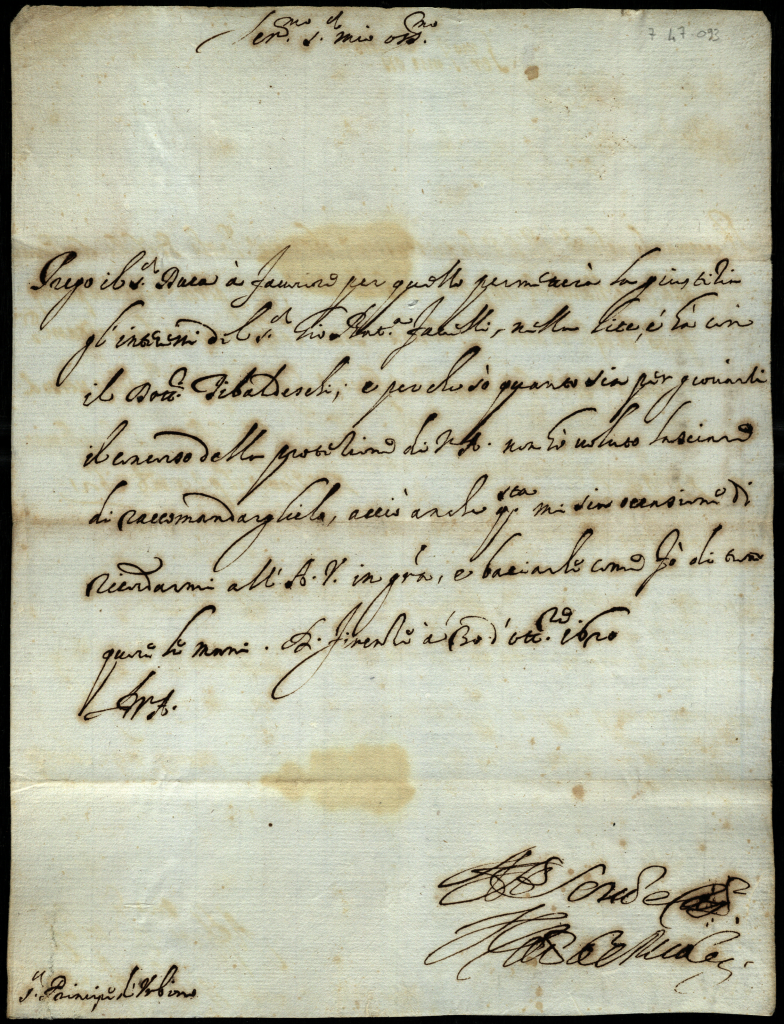 Ser.mo s.r mio oss.mo
7 47 093
Prego il s.r Duca à favorire per quello permetterà la giustitia
gl'interessi del s.r Gio Ant.o Favelli, nella lite, é hà con
il Dott.r Tibaldeschi; e perche sò quanto sia per giovarli
il concorso della protetione di V.A. non hò voluto lasciare
di raccomandarglielo, acciò anche q.sta mi sia occasione di
ricordarmi all'A.V. in gr̃a, e baciarle come fò di
quore le mani. Di Firenze à 30 d'ott.re 1620
D.V.A.
s.r Principe d'Urbino